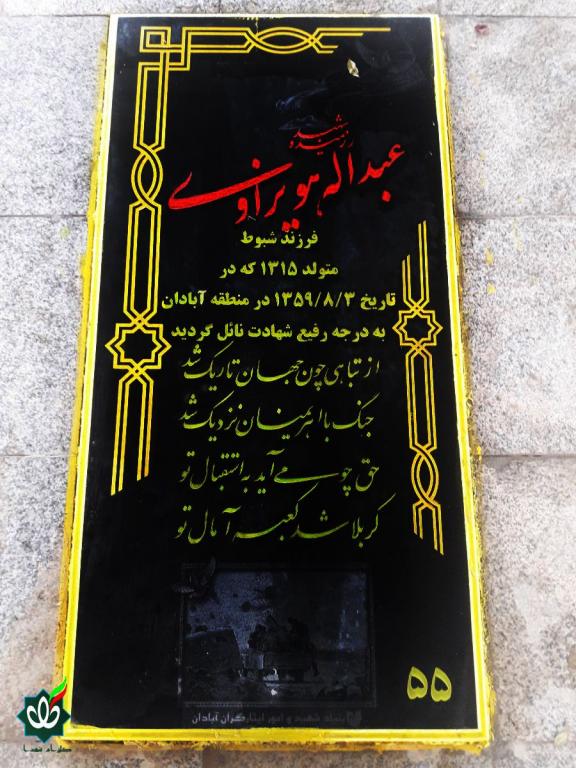 شهید
رزمنده
عبداله هویزاوی
فرزند شبوط
متولد ۱۳۱۵ که در
تاریخ ۱۳۵۹/۸/۳ در منطقه آبادان
به درجه رفیع شهادت نائل گردید
از تباهی چون جهان تاریک شد
جنگ با اهریمنان نزدیک شد
حق چو می آید به استقبال تو
کربلا شد کعبه آمال تو
۵۵
بنیاد شهید و امور ایثارگران آبادان